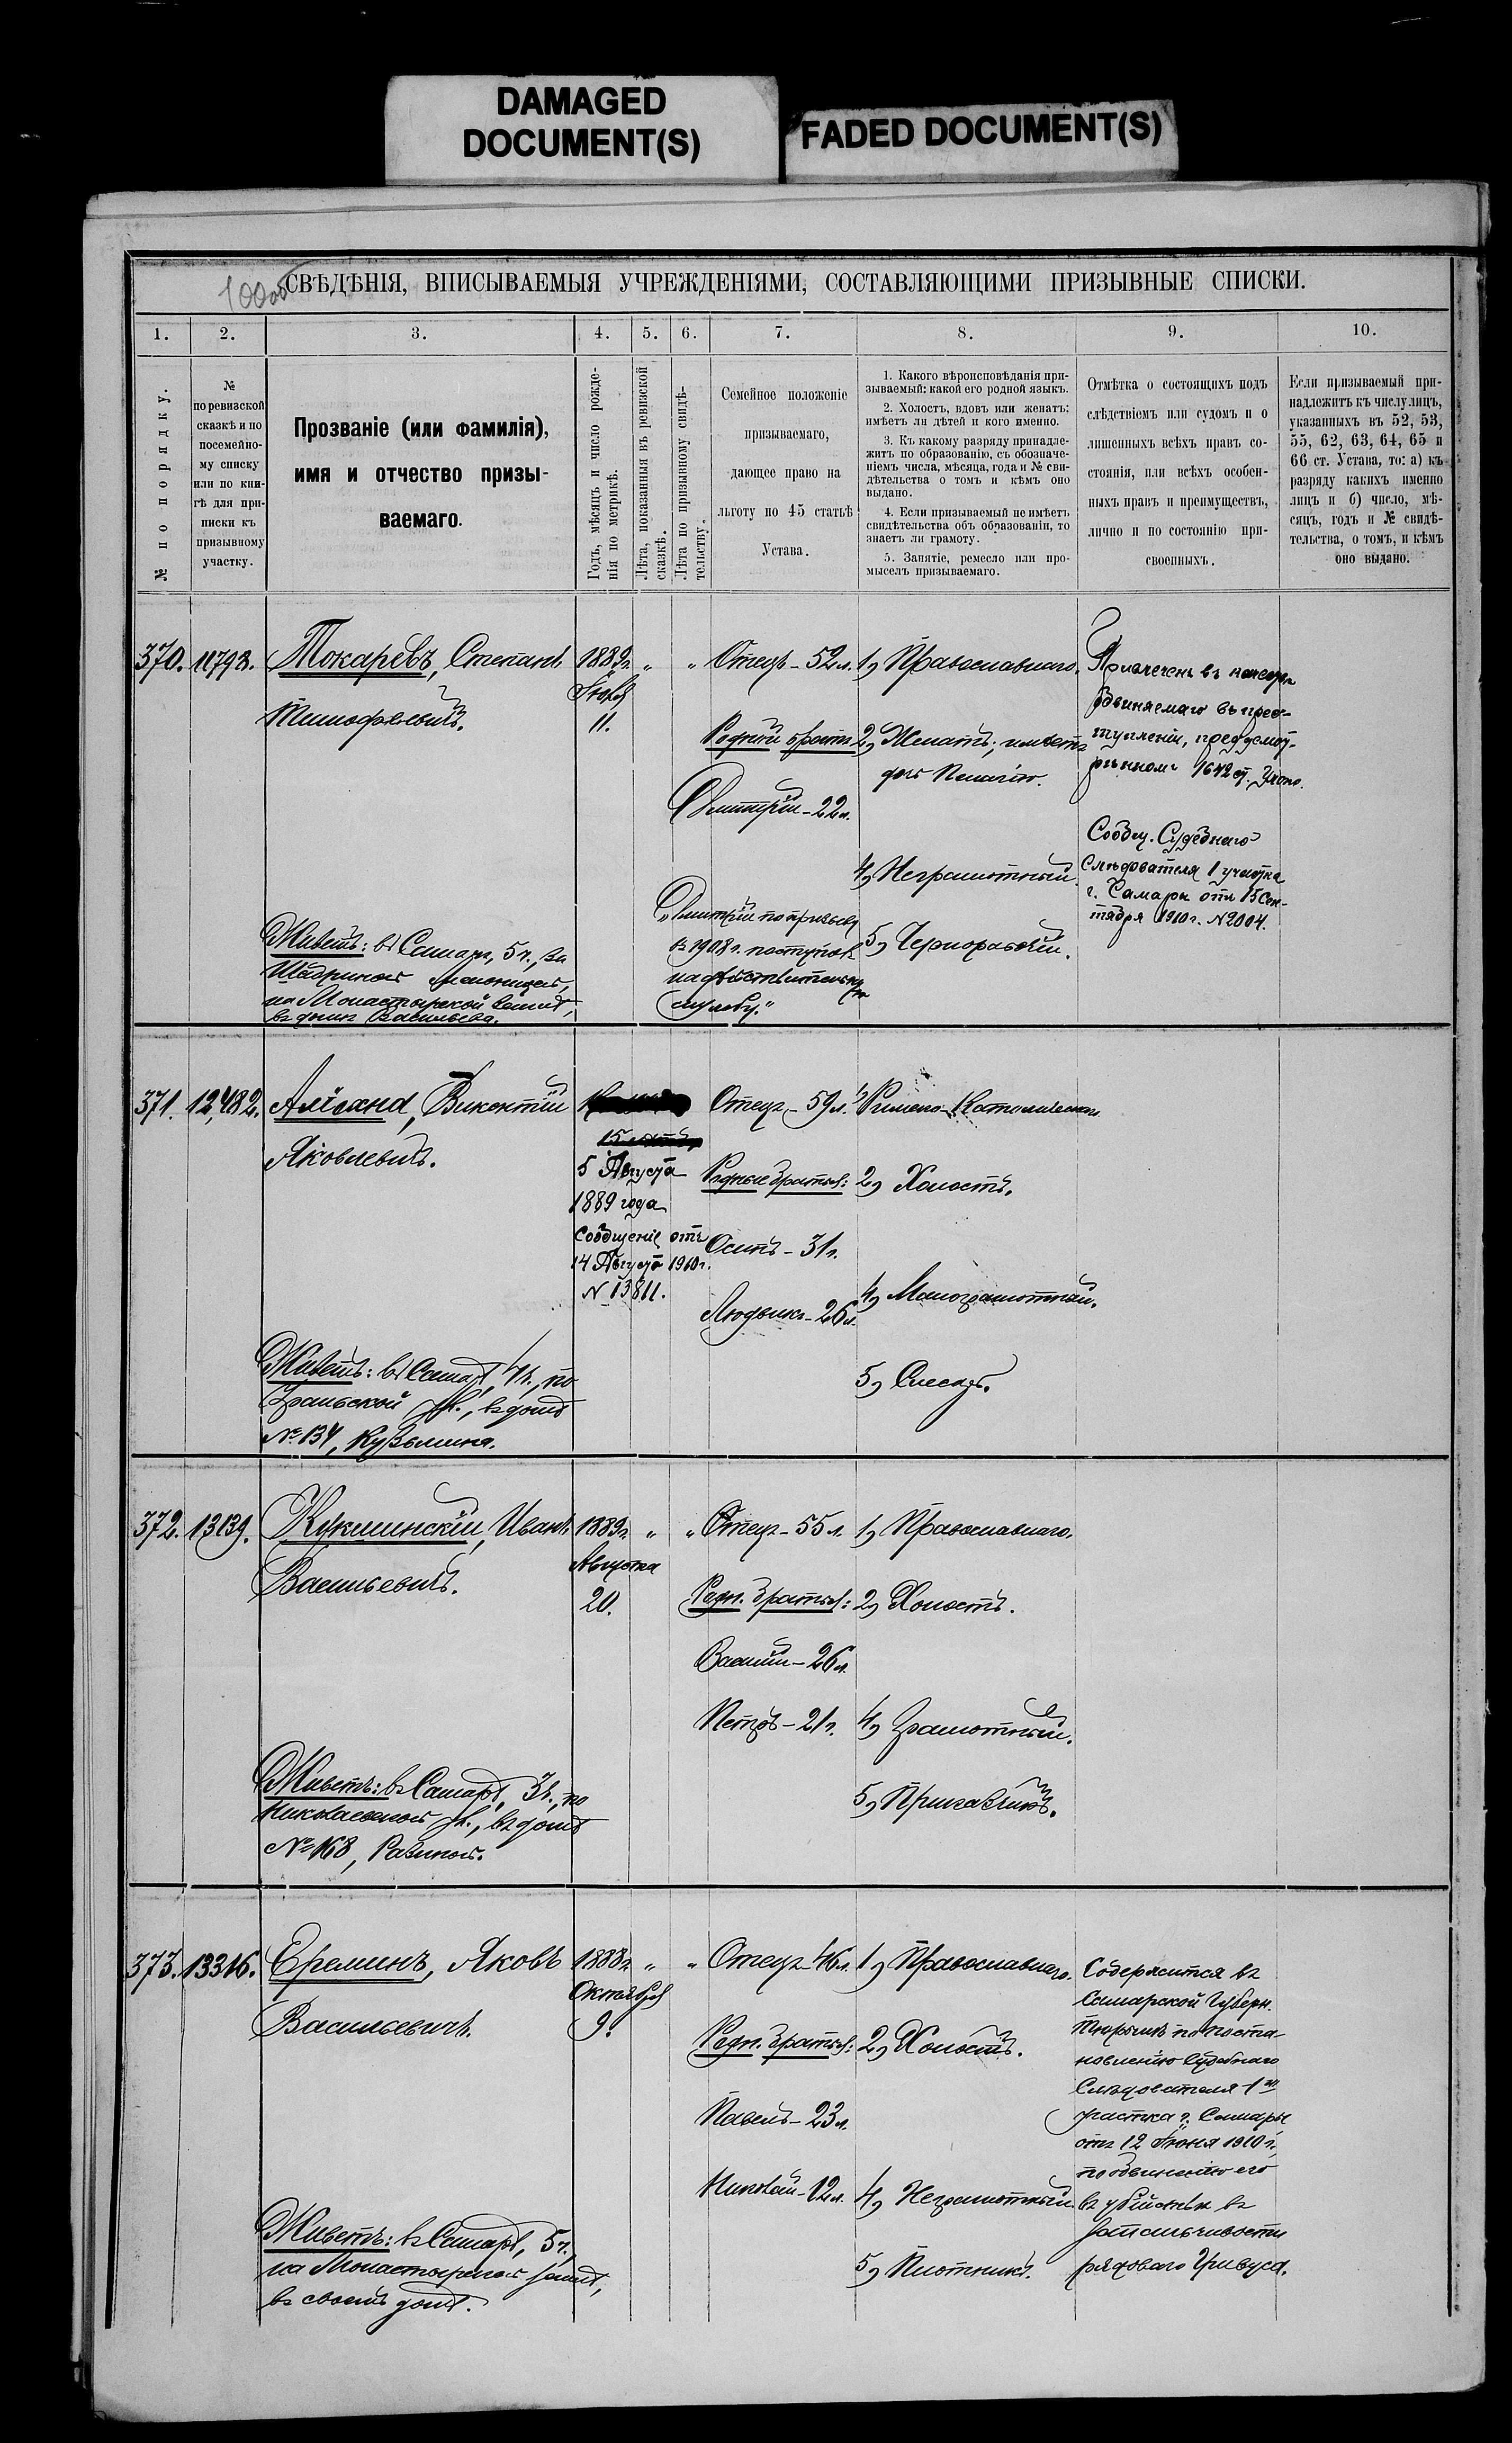 DAMAGED
DOCUMENT(S)
FADED DOCUMENT(S)
СВѢДѢНІЯ, ВПИСЫВАЕМЫЯ УЧРЕЖДЕНІЯМИ, СОСТАВЛЯЮЩИМИ ПРИЗЫВНЫЕ СПИСКИ.
1. 2. 3. 4. 5. 6. 7. 8. 9. 10.
№ по порядку.
№
по ревизской
сказкѣ и по
посемейно-
му списку
или по кни-
гѣ для при-
писки къ
призывному
участку.
Прозваніе (или фамилія),
имя и отчество призы-
ваемаго.
Годъ, мѣсяцъ и число рожде-
нія по метрикѣ.
Лѣта, показанныя въ ревизской
сказкѣ.
Лѣта по призывному свидѣ-
тельству.
Семейное положеніе
призываемаго,
дающее право на
льготу по 45 статьѣ
Устава.
1. Какого вѣроисповѣданія при-
зываемый; какой его родной языкъ.
2. Холостъ, вдовъ или женатъ;
имѣетъ ли дѣтей и кого именно.
3. Къ какому разряду принадле-
житъ по образованію, съ обозначе-
ніемъ числа, мѣсяца, года и № сви-
дѣтельства о томъ и кѣмъ оно
выдано.
4. Если призываемый не имѣетъ
свидѣтельства объ образованіи, то
знаетъ ли грамоту.
5. Занятіе, ремесло или про-
мыселъ призываемаго.
Отмѣтка о состоящихъ подъ
слѣдствіемъ или судомъ и о
лишенныхъ всѣхъ правъ со-
стоянія, или всѣхъ особен-
ныхъ правъ и преимуществъ,
лично и по состоянію при-
своенныхъ.
Если призываемый при-
надлежитъ къ числу лицъ,
указанныхъ въ 52, 53,
55, 62, 63, 64, 65 и
66 ст. Устава, то: а) къ
разряду какихъ именно
лицъ и б) число, мѣ-
сяцъ, годъ и № свидѣ-
тельства, о томъ, и кѣмъ
оно выдано.
370. 11793. Токаревъ, Степанъ
Тимофѣевичъ.
Живетъ: въ Самарѣ, 5 ч., за
на Монастырской
въ домѣ Васильева.
1889 г.
11.
" "
Отецъ - 52 л.
Родной братъ
Дмитрій - 22 л.
"Дмитрій по призыву
въ 1908 г. поступилъ
на дѣйствительную
службу."
1, Православнаго.
2, Женатъ; имѣетъ
дочь Пелагію.
4, Неграмотный.
5, Чернорабочій.
Привлеченъ въ качеств.
обвиняемаго въ прес-
тупленіи, предусмот-
рѣнномъ 1642 ст. Улож.
Сообщ. Судебнаго
Слѣдователя 1 участка
г. Самары отъ 15 Сен-
тября 1910 г. N 2004.
371. 12,482. Алісанд, Викентій
Яковлевичъ.
Живетъ: въ Самарѣ, 4 ч., по
Уральской ул., въ домѣ
№ 134, Кузьмина.
5 Августа
1889 года
Сообщеніе отъ
14 Августа 1910 г.
N 13811.
Отецъ - 59 л.
Родные братья:
Осипъ - 31 г.
Людвикъ - 26 л.
1, Римско-Католическаго
2, Холостъ.
4, Малограмотный.
5, Слесарь.
372. 13139. Кукшинскій, Иванъ
Васильевичъ.
Живетъ: въ Самарѣ, 3 ч., по
Николаевской ул., въ домѣ
№ 168, Разиной.
1889 г.
Августа
20.
" "
Отецъ - 55 л.
Родн. братья:
Василій - 26 л.
Петръ - 21 г.
1, Православнаго.
2, Холостъ.
4, Грамотный.
5, Приказчикъ.
373. 13316. Ереминъ, Яковъ
Васильевичъ.
Живетъ: въ Самарѣ, 5 ч.,
на Монастырской
въ своемъ домѣ.
1888 г.
Октября
9.
" "
Отецъ - 46 л.
Родн. братья:
Павелъ - 23 л.
Николай - 12 л.
1, Православнаго.
2, Холостъ.
4, Неграмотный.
5, Плотникъ.
Содержится въ
Самарской Губерн.
Тюрьмѣ по поста-
новленію Судебнаго
Слѣдователя 1го
участка г. Самары
отъ 12 Іюня 1910 г.
по обвиненію его
въ убійствѣ въ
запальчивости
рядоваго